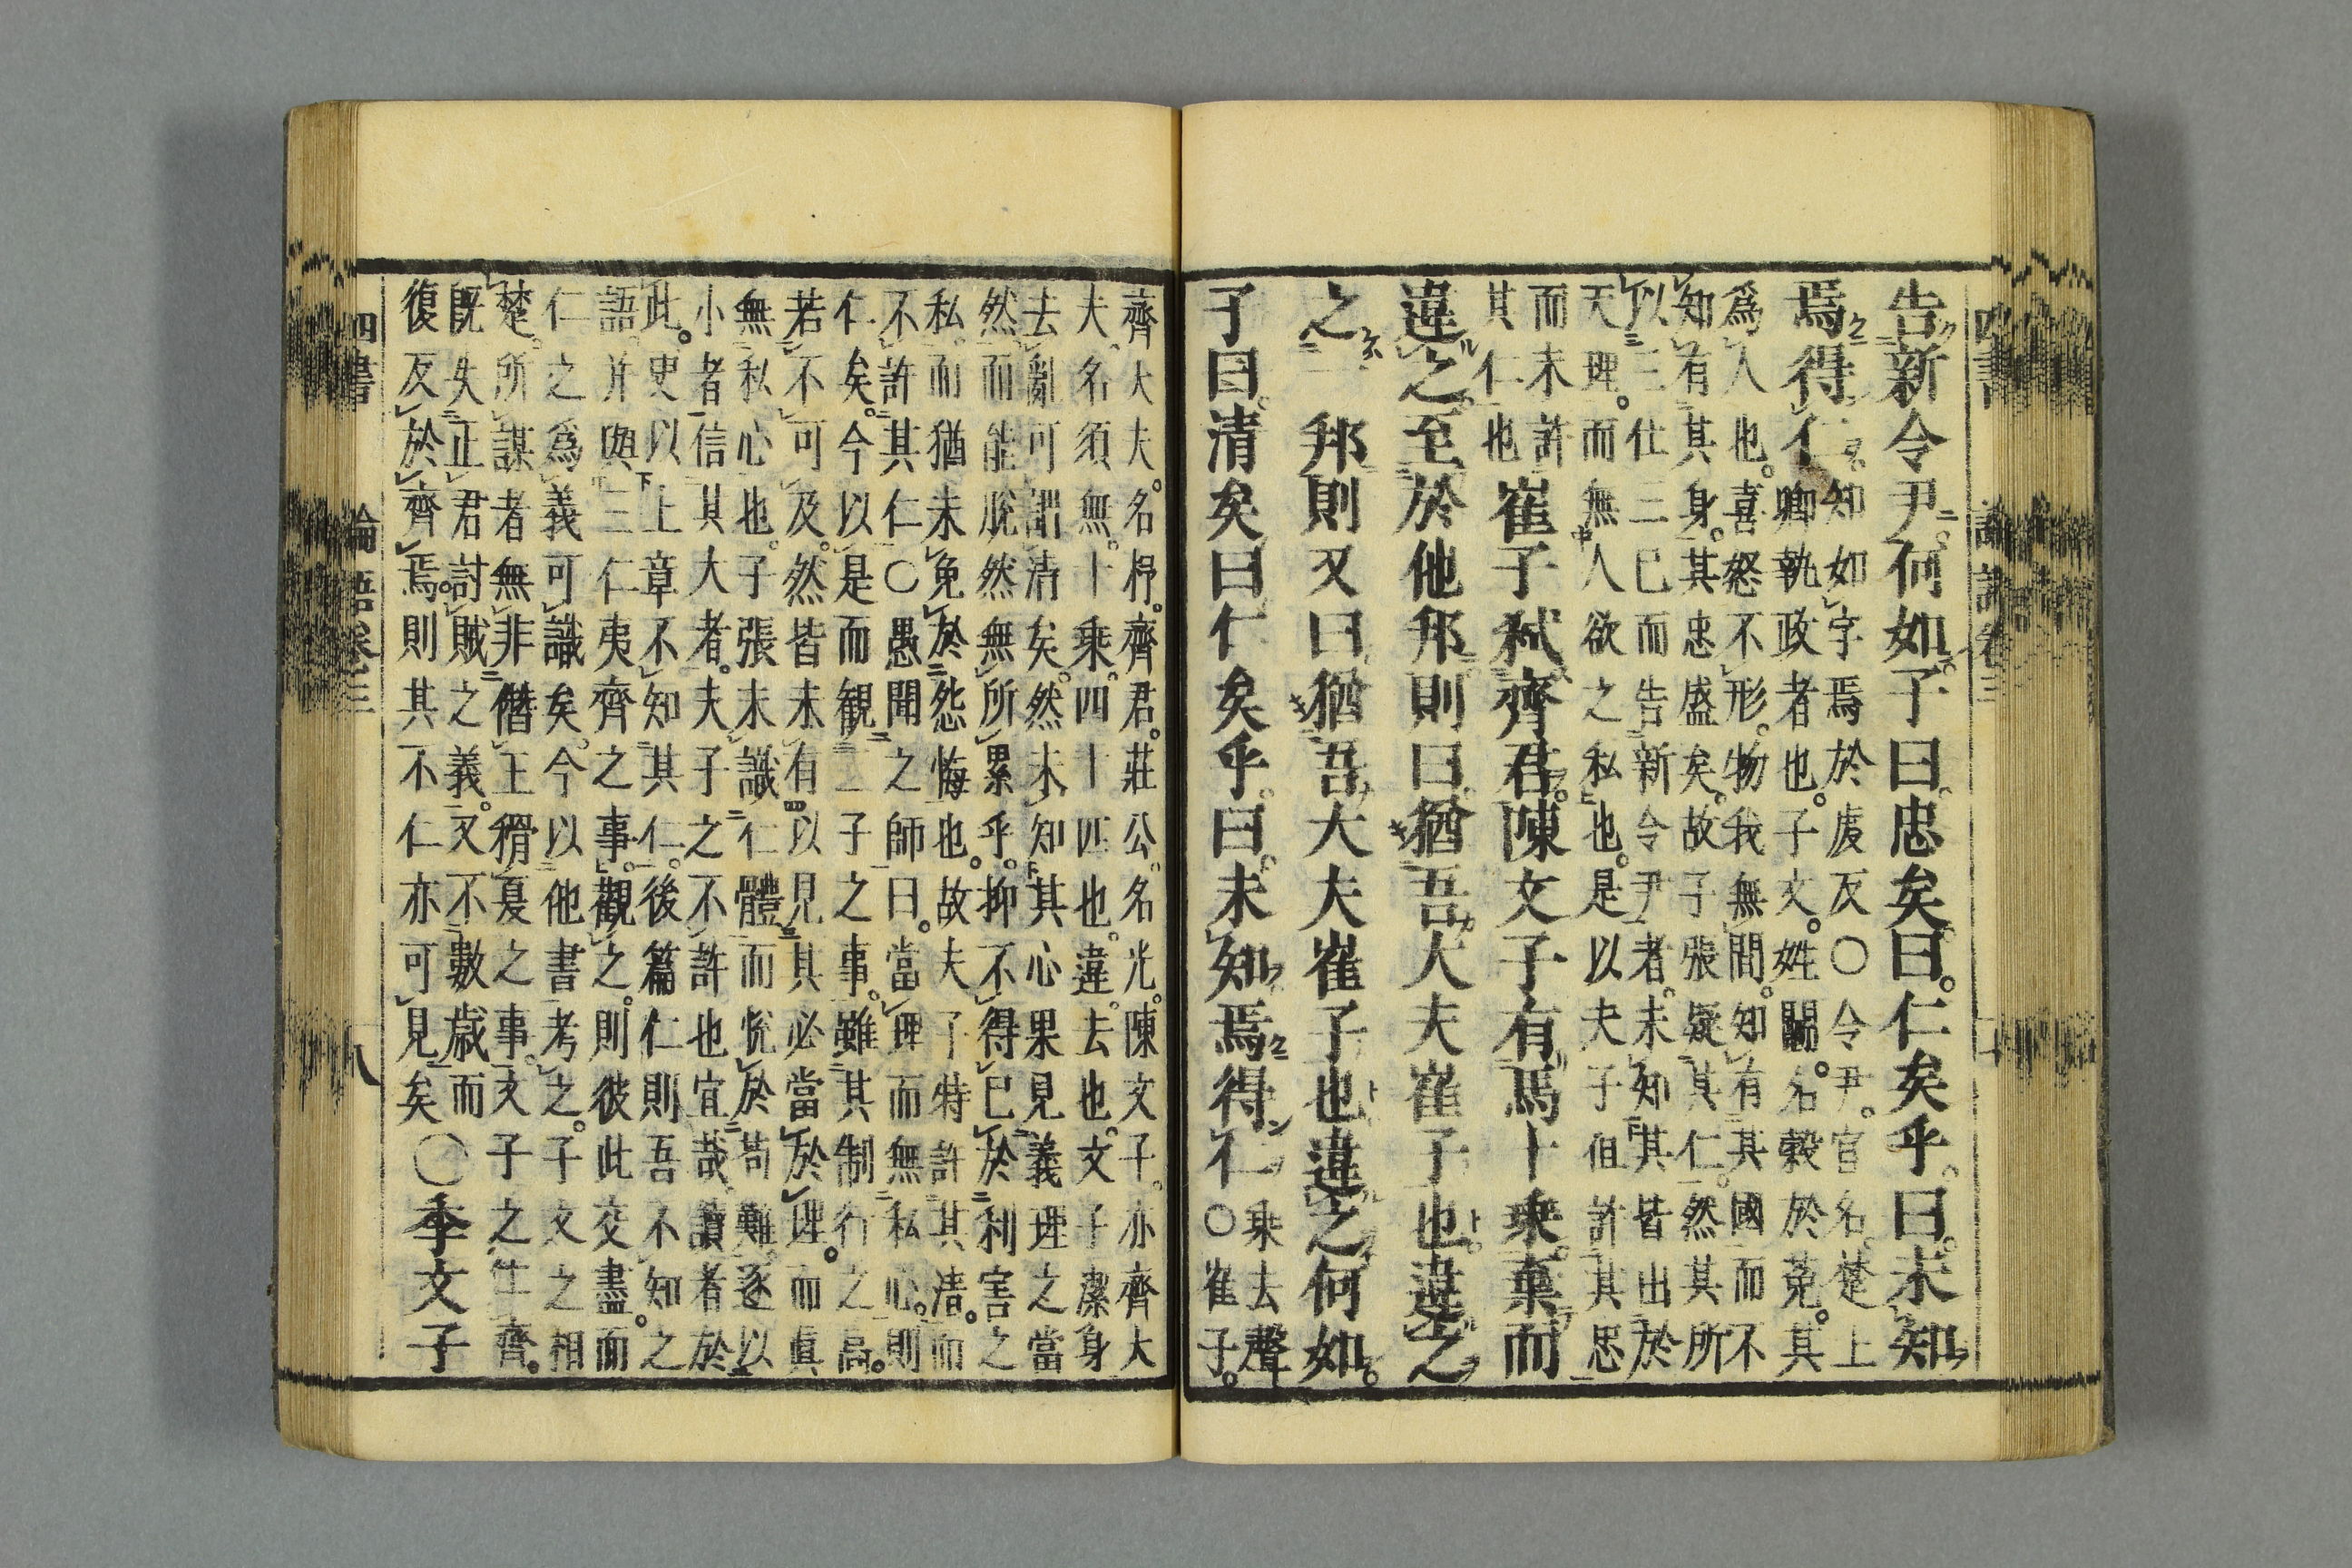 告新令尹何如子曰忠矣曰仁矣乎曰未知
焉得仁
知如字焉於虔反〇令尹官名楚上
卿執政者也子文姓鬭名穀於菟其
爲人也喜怒不形物我無間知有其國而不
知有其身其忠盛矣故子張疑其仁然其所
以三仕三已而告新令尹者未知其皆出於
天理而無人欲之私也是以夫子但許其忠
而未許
其仁也
崔子弑齊君陳文子有馬十乘棄而
違之至於他邦則曰猶吾大夫崔子也違之
之一邦則又曰猶吾大夫崔子也違之何如
子曰清矣曰仁矣乎曰未知焉得仁
乘去聲
〇崔子
齊大夫名杼齊君莊公名光陳文子亦齊大
夫名須無十乘四十匹也違去也文子潔身
去亂可謂清矣然未知其心果見義理之當
然而能脫然無所累乎抑不得已於利害之
私而猶未免於怨悔也故夫子特許其清而
不許其仁〇愚聞之師曰當理而無私心則
仁矣今以是而觀二子之事雖其制行之高
若不可及然皆未有以見其必當於理而眞
無私心也子張未識仁體而悅於苟難遂以
小者信其大者夫子之不許也宜哉讀者於
此更以上章不知其仁後篇仁則吾不知之
語幷與三仁夷齊之事觀之則彼此交盡而
仁之爲義可識矣今以他書考之子文之相
楚所謀者無非僭王猾夏之事文子之仕齊
既失正君討賊之義又不數歲而
復反於齊焉則其不仁亦可見矣
〇季文子
四書 論語卷三 八